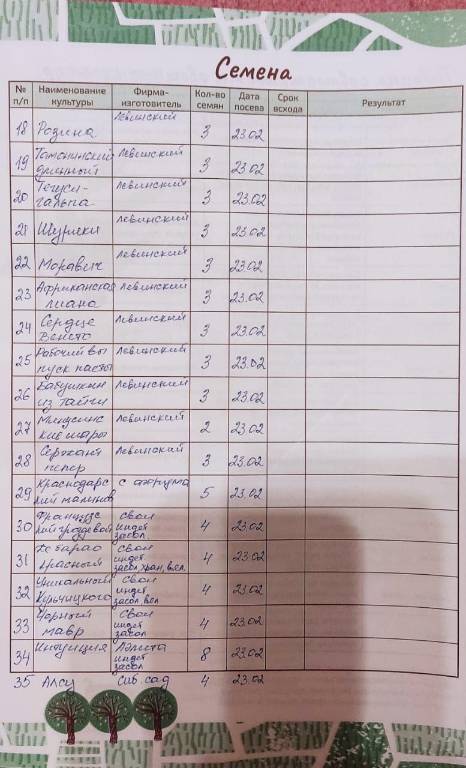 Семена
№ п/п Наименование культуры Фирма-изготовитель Кол-во семян Дата посева Срок всхода Результат
18 Родина Левинский 3 23.02
19 длинный Левинский 3 23.02
20 Тегуси-гальпа Левинский 3 23.02
21 Шурики Левинский 3 23.02
22 Моравич Левинский 3 23.02
23 Африканская лиана Левинский 3 23.02
24 Сердце Левинский 3 23.02
25 Рабочий вы пуск пасты Левинский 3 23.02
26 Бабушкин из тайги Левинский 3 23.02
27 Минусинс кие шары Левинский 2 23.02
28 Сержант пепер Левинский 3 23.02
29 Краснодарс кий малинов с форума 5 23.02
30 Француз кий гроздевой Свои индет засол 4 23.02
31 Де барао красный Свои индет засол, хран, вял. 4 23.02
32 Уникальный Кульчицкого Свои индет засол, вял 4 23.02
33 Чорный мавр Свои индет засол 4 23.02
34 Интуиция Лолита индет засол 8 23.02
35 Алсу Сиб. сад 4 23.02